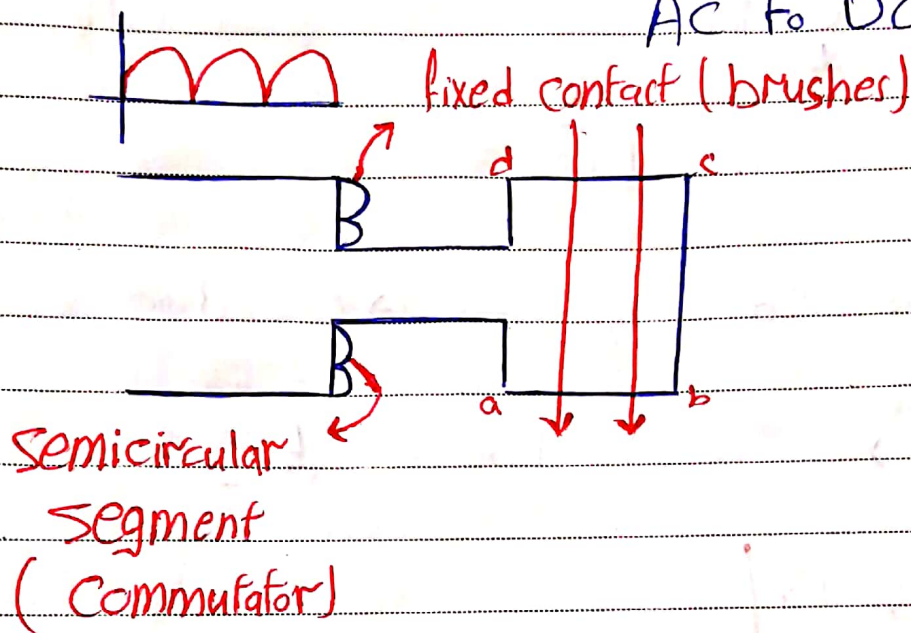 AC to DC
fixed contact (brushes)
d
c
B
B
a
b
semicircular
segment
(Commutator)